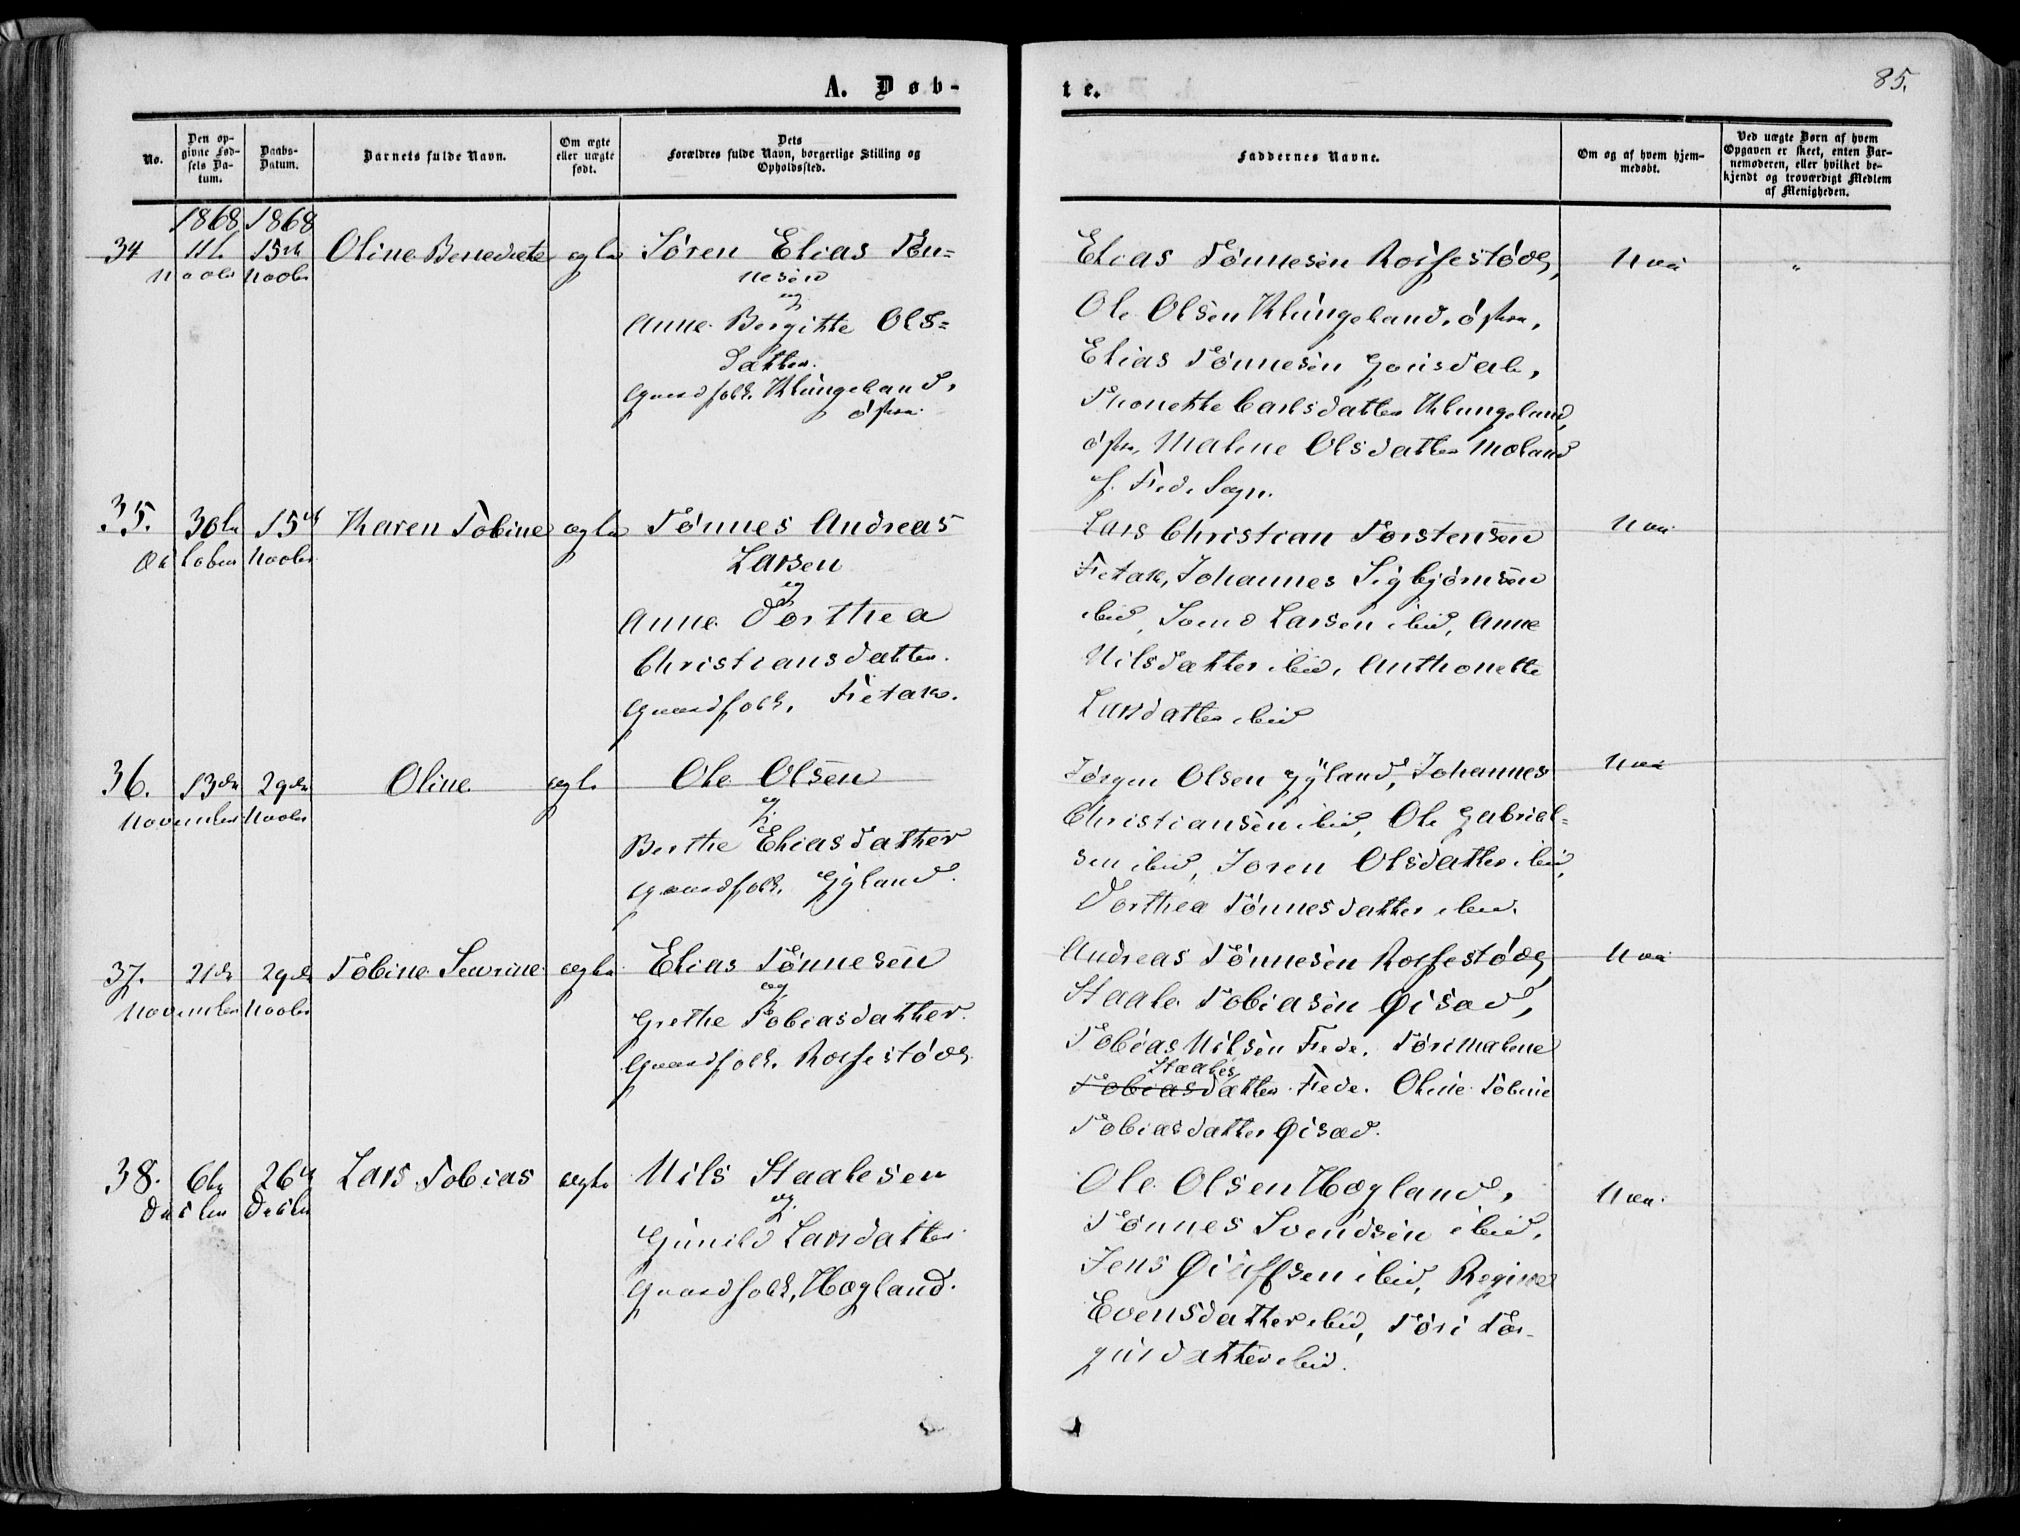 A. Døb-
te.
85.
No.
Den op-
givne Fød-
sels Da-
tum.
Daabs-
Datum.
Barnets fulde Navn.
Om ægte
eller uægte
født.
Dets
Forældres fulde Navn, borgerlige Stilling og
Opholdssted.
Faddernes Navne.
Om og af hvem hjem-
medøbt.
Ved uægte Børn af hvem
Opgaven er skeet, enten Bar-
nemoderen, eller hvilket be-
kjendt og troværdigt Medlem
af Menigheden.
1868 1868
34 15de Oline Benedicte ægte Søren Elias Tøn-
Novbr Novbr nesen
og
Anne Bergitte Ols-
datter.
Gaardfolk Klungeland,
østre.
Elias Tønnesen Rossestøde,
Ole Olsen Klungeland, østre,
Elias Tønnesen
Thonette Carlsdatter Klungeland,
østre, Malene Olsdatter Moland
f. Fede Sogn.
Nei
"
35. 30te 15de Karen Tobine ægte Tønnes Andreas
October Novbr Larsen
og
Anne Dorthea
Christiansdatter.
Gaardfolk, Fietar.
Lars Christian Torstensen
Johannes Sigbjørnsen
ibid, Larsen ibid, Anne
Nilsdatter ibid, Anthonette
Larsdatter ibid
Nei
36. 13de 29de Oline ægte Ole Olsen
November Novbr og
Berthe Eliasdatter
Gaardfolk, Gyland.
Jørgen Olsen Gyland, Johannes
Christiansen ibid, Ole Gabriel-
sen ibid, Joren Olsdatter ibid,
Dorthea Tønnesdatter ibid.
Nei
37. 21de 29de Tobine Sevrine ægte Elias Tønnesen
November Novbr og
Grethe Tobiasdatter.
Gaardfolk, Rossestøde
Andreas Tønnesen Rossestøde,
Staale Tobiasen Øisæd,
Tobias Nilsen Fede. Tøri Malene
Staales
Tobiasdatter Fede. Oline Tobine
Tobiasdatter Øisæd.
Nei
38. 6te 26de Lars Tobias ægte Nils Staalesen
Decbr Decbr og
Gunild Larsdatter
Gaardfolk, Hægland.
Ole Olsen Hægland,
Tønnes Svendsen ibid,
Jens ibid, Regine
Evensdatter ibid, Tøri Tor-
gersdatter ibid.
Nei